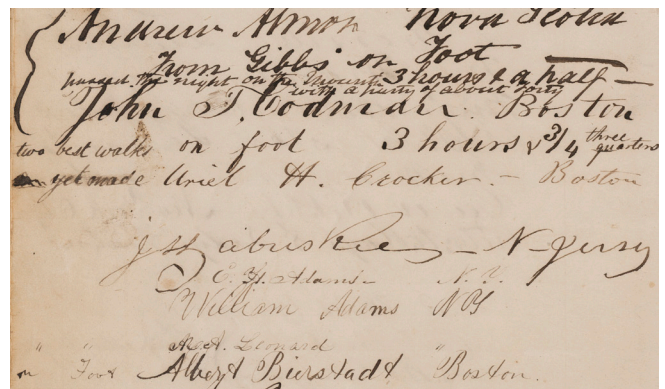 Andrew Almon Nova Scotia
From Gibbs' on Foot
passed the night on the Mount 3 hours & a half —
with a party of about forty
John T. Codman. Boston
two best walks on foot 3 hours & 3/4 three quarters
yet made Uriel H. Crocker. — Boston
J H Zabriskie — N-Jersey
C. H. Adams — N. Y.
William Adams NY
" " M. A. Leonard "
on Foot Albert Bierstadt Boston.